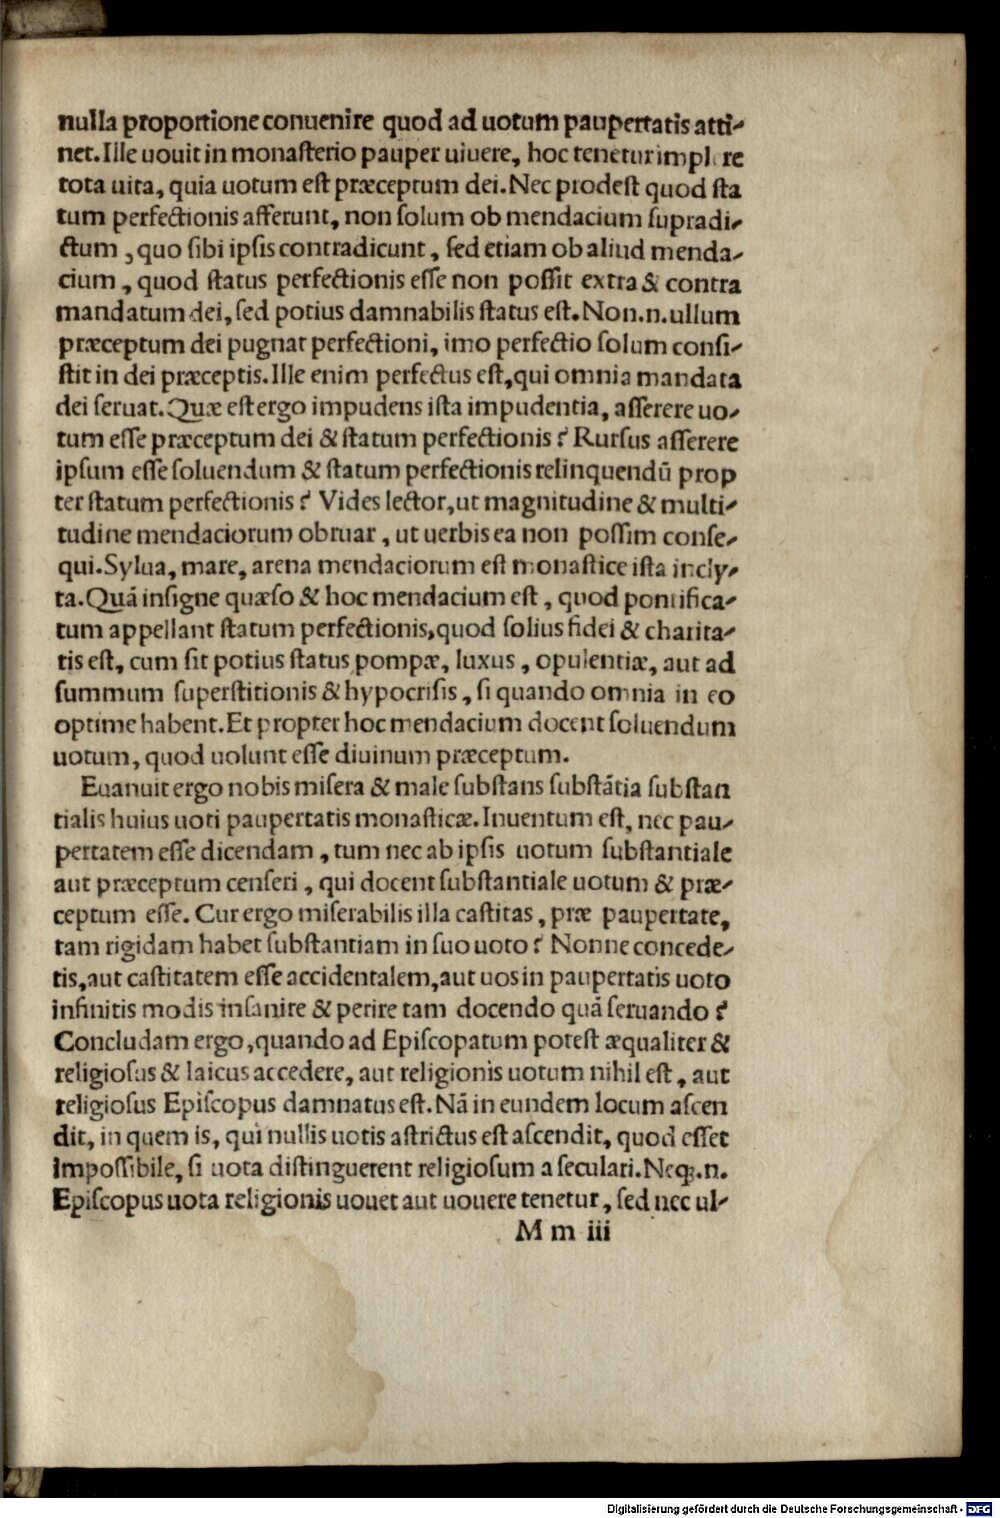 nulla proportione conuenire quod ad uotum paupertatis atti-
net. Ille uouit in monasterio pauper uiuere, hoc tenetur implere
tota uita, quia uotum est præceptum dei. Nec prodest quod sta
tum perfectionis afferunt, non solum ob mendacium supradi-
ctum, quo sibi ipsis contradicunt, sed etiam ob aliud menda-
cium, quod status perfectionis esse non possit extra & contra
mandatum dei, sed potius damnabilis status est. Non.n.ullum
præceptum dei pugnat perfectioni, imo perfectio solum consi-
stit in dei præceptis. Ille enim perfectus est, qui omnia mandata
dei seruat. Quæ est ergo impudens ista impudentia, asserere uo-
tum esse præceptum dei & statum perfectionis? Rursus asserere
ipsum esse soluendum & statum perfectionis relinquendū prop
ter statum perfectionis? Vides lector, ut magnitudine & multi-
tudine mendaciorum obruar, ut uerbis ea non possim conse-
qui. Sylua, mare, arena mendaciorum est monastice ista incly-
ta. Quā insigne quæso & hoc mendacium est, quod pontifica-
tum appellant statum perfectionis, quod solius fidei & charita-
tis est, cum sit potius status pompæ, luxus, opulentiæ, aut ad
summum superstitionis & hypocrisis, si quando omnia in eo
optime habent. Et propter hoc mendacium docent soluendum
uotum, quod uolunt esse diuinum præceptum.
Euanuit ergo nobis misera & male substans substātia substan
tialis huius uoti paupertatis monasticæ. Inuentum est, nec pau-
pertatem esse dicendam, tum nec ab ipsis uotum substantiale
aut præceptum censeri, qui docent substantiale uotum & præ-
ceptum esse. Cur ergo miserabilis illa castitas, præ paupertate,
tam rigidam habet substantiam in suo uoto? Nonne concede-
tis, aut castitatem esse accidentalem, aut uos in paupertatis uoto
infinitis modis insanire & perire tam docendo quā seruando?
Concludam ergo, quando ad Episcopatum potest æqualiter &
religiosus & laicus accedere, aut religionis uotum nihil est, aut
religiosus Episcopus damnatus est. Nā in eundem locum ascen
dit, in quem is, qui nullis uotis astrictus est ascendit, quod esset
impossibile, si uota distinguerent religiosum a seculari. Neq;.n.
Episcopus uota religionis uouet aut uouere tenetur, sed nec ul-
M m iii
Digitalisierung gefördert durch die Deutsche Forschungsgemeinschaft - DFG